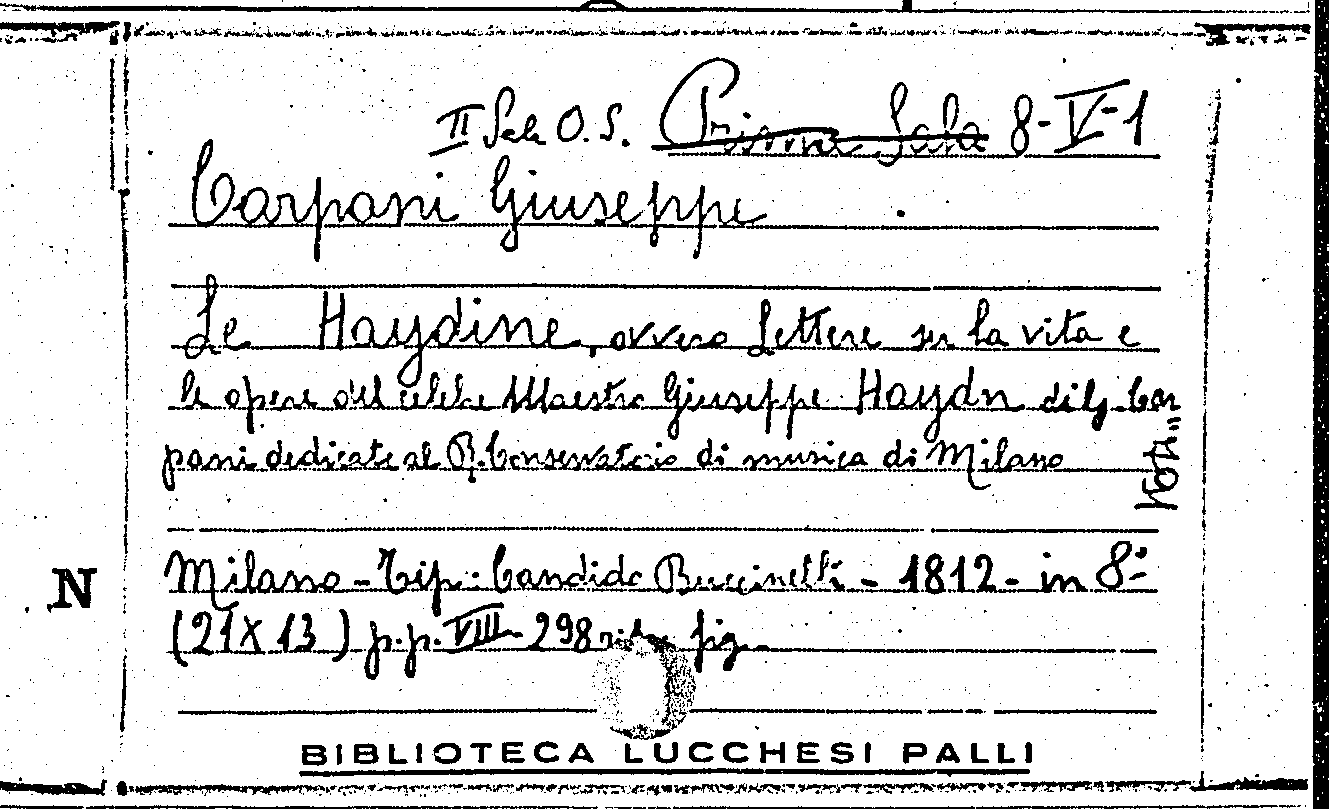 II Sala O. S. Prima Sala 8-V-1
Carpani Giuseppe
Le Haydine, ovvero Lettere su la vita e
le opere del celebre Maestro Giuseppe Haydn di G. Car
pani dedicate al R. Conservatorio di musica di Milano
Milano - Tip. Candido Buccinelli - 1812 - in 8°
N
(21 X 13) p.p. VIII - 298 fig.
BIBLIOTECA LUCCHESI PALLI